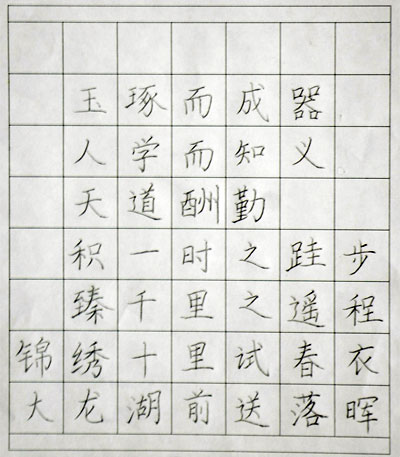 玉琢而成器
人学而知义
天道酬勤
积一时之跬步
臻千里之遥程
锦绣十里试春衣
大龙湖前送落晖